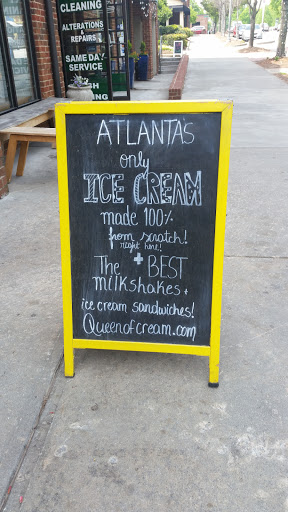 CLEANING
ALTERATIONS
& REPAIRS
SAME DAY
SERVICE
ATLANTA'S
only
ICE CREAM
made 100%
from scratch!
right here!
+
The BEST
milkshakes +
ice cream sandwiches!
Queenofcream.com